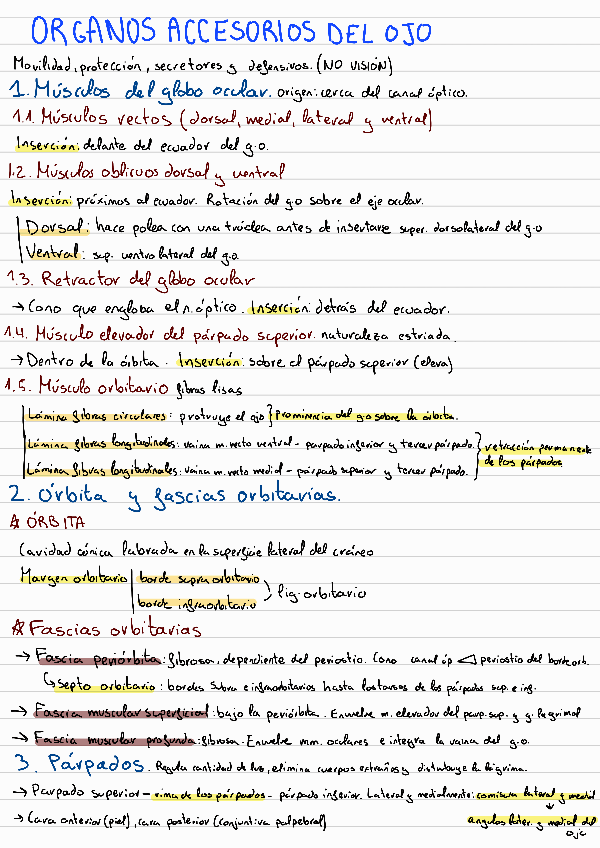 ORGANOS ACCESORIOS DEL OJO
Movilidad, protección, secretores y defensivos. (NO VISIÓN)
1. Músculos del globo ocular. origen: cerca del canal óptico.
1.1. Músculos rectos (dorsal, medial, lateral y ventral)
Inserción: delante del ecuador del g.o.
1.2. Músculos oblicuos dorsal y ventral
Inserción: próximos al ecuador. Rotación del g.o sobre el eje ocular.
Dorsal: hace polea con una tróclea antes de insertarse super. dorsolateral del g.o
Ventral: sup. ventrolateral del g.o.
1.3. Retractor del globo ocular
→ Cono que engloba el n. óptico. Inserción: detrás del ecuador.
1.4. Músculo elevador del párpado superior. naturaleza estriada.
→ Dentro de la órbita. Inserción: sobre el párpado superior (eleva)
1.5. Músculo orbitario fibras lisas
Lámina fibras circulares: protruye el ojo } Prominencia del g.o sobre la órbita.
Lámina fibras longitudinales: vaina m. recto ventral - parpado inferior y tercer párpado.
Lámina fibras longitudinales: vaina m. recto medial - párpado superior y tercer párpado. } retracción permanente de los párpados
2. Órbita y fascias orbitarias.
ÓRBITA
Cavidad cónica labrada en la superficie lateral del cráneo
Margen orbitario borde supraorbitario
borde infraorbitario } lig. orbitario
Fascias orbitarias
→ Fascia periórbita: fibrosa, dependiente del periostio. Cono canal óp ◁ periostio del borde orb.
↳ septo orbitario: bordes supra e infraorbitarios hasta los tarsos de los párpados sup. e inf.
→ Fascia muscular superficial: bajo la periórbita. Envuelve m. elevador del parp. sup. y g. lagrimal
→ Fascia muscular profunda: fibrosa. Envuelve mm. oculares e integra la vaina del g.o.
3. Párpados. Regula cantidad de luz, elimina cuerpos extraños y distribuye la lágrima.
→ Parpado superior - rima de los párpados - párpado inferior. Lateral y medialmente: comisura lateral y medial
↓
→ Cara anterior (piel), cara posterior (conjuntiva palpebral) angulos later. y medial del ojo